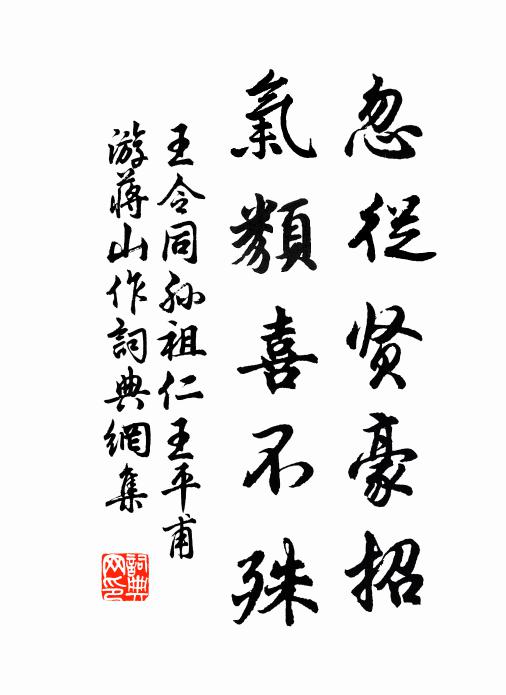 忽從贤豪招
氣類喜不殊
王令同孙祖仁王平甫
游蔣山作詞典網集
詞典网印